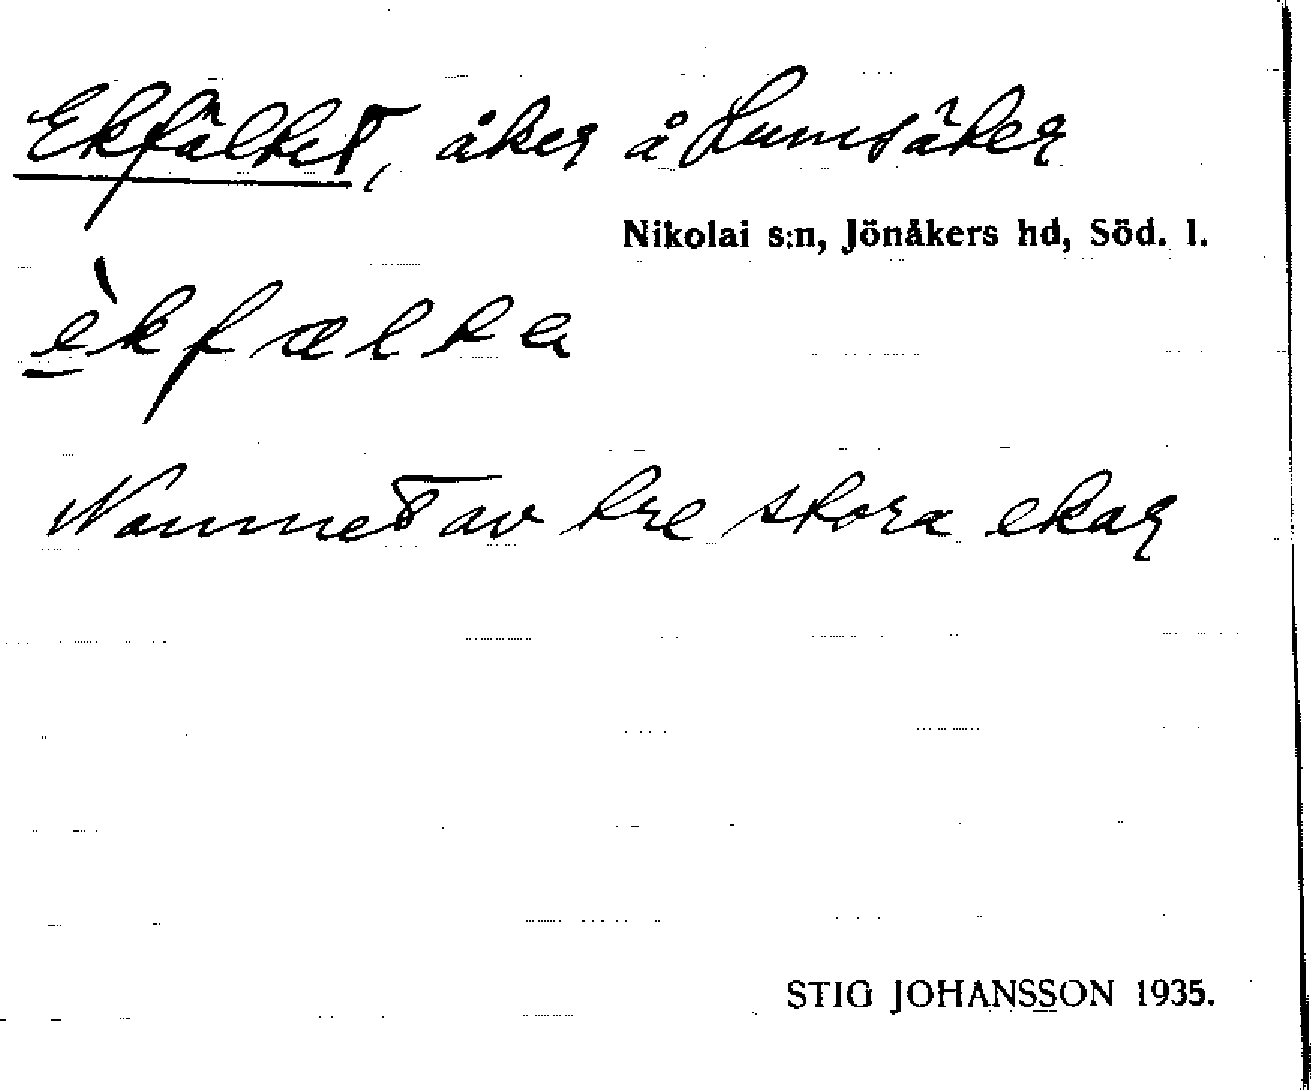 Ekfältet, åker å
Nikolai s:n, Jönåkers hd, Söd. l.
èkfælta
Namnet av tre stora ekar
STIG JOHANSSON 1935.